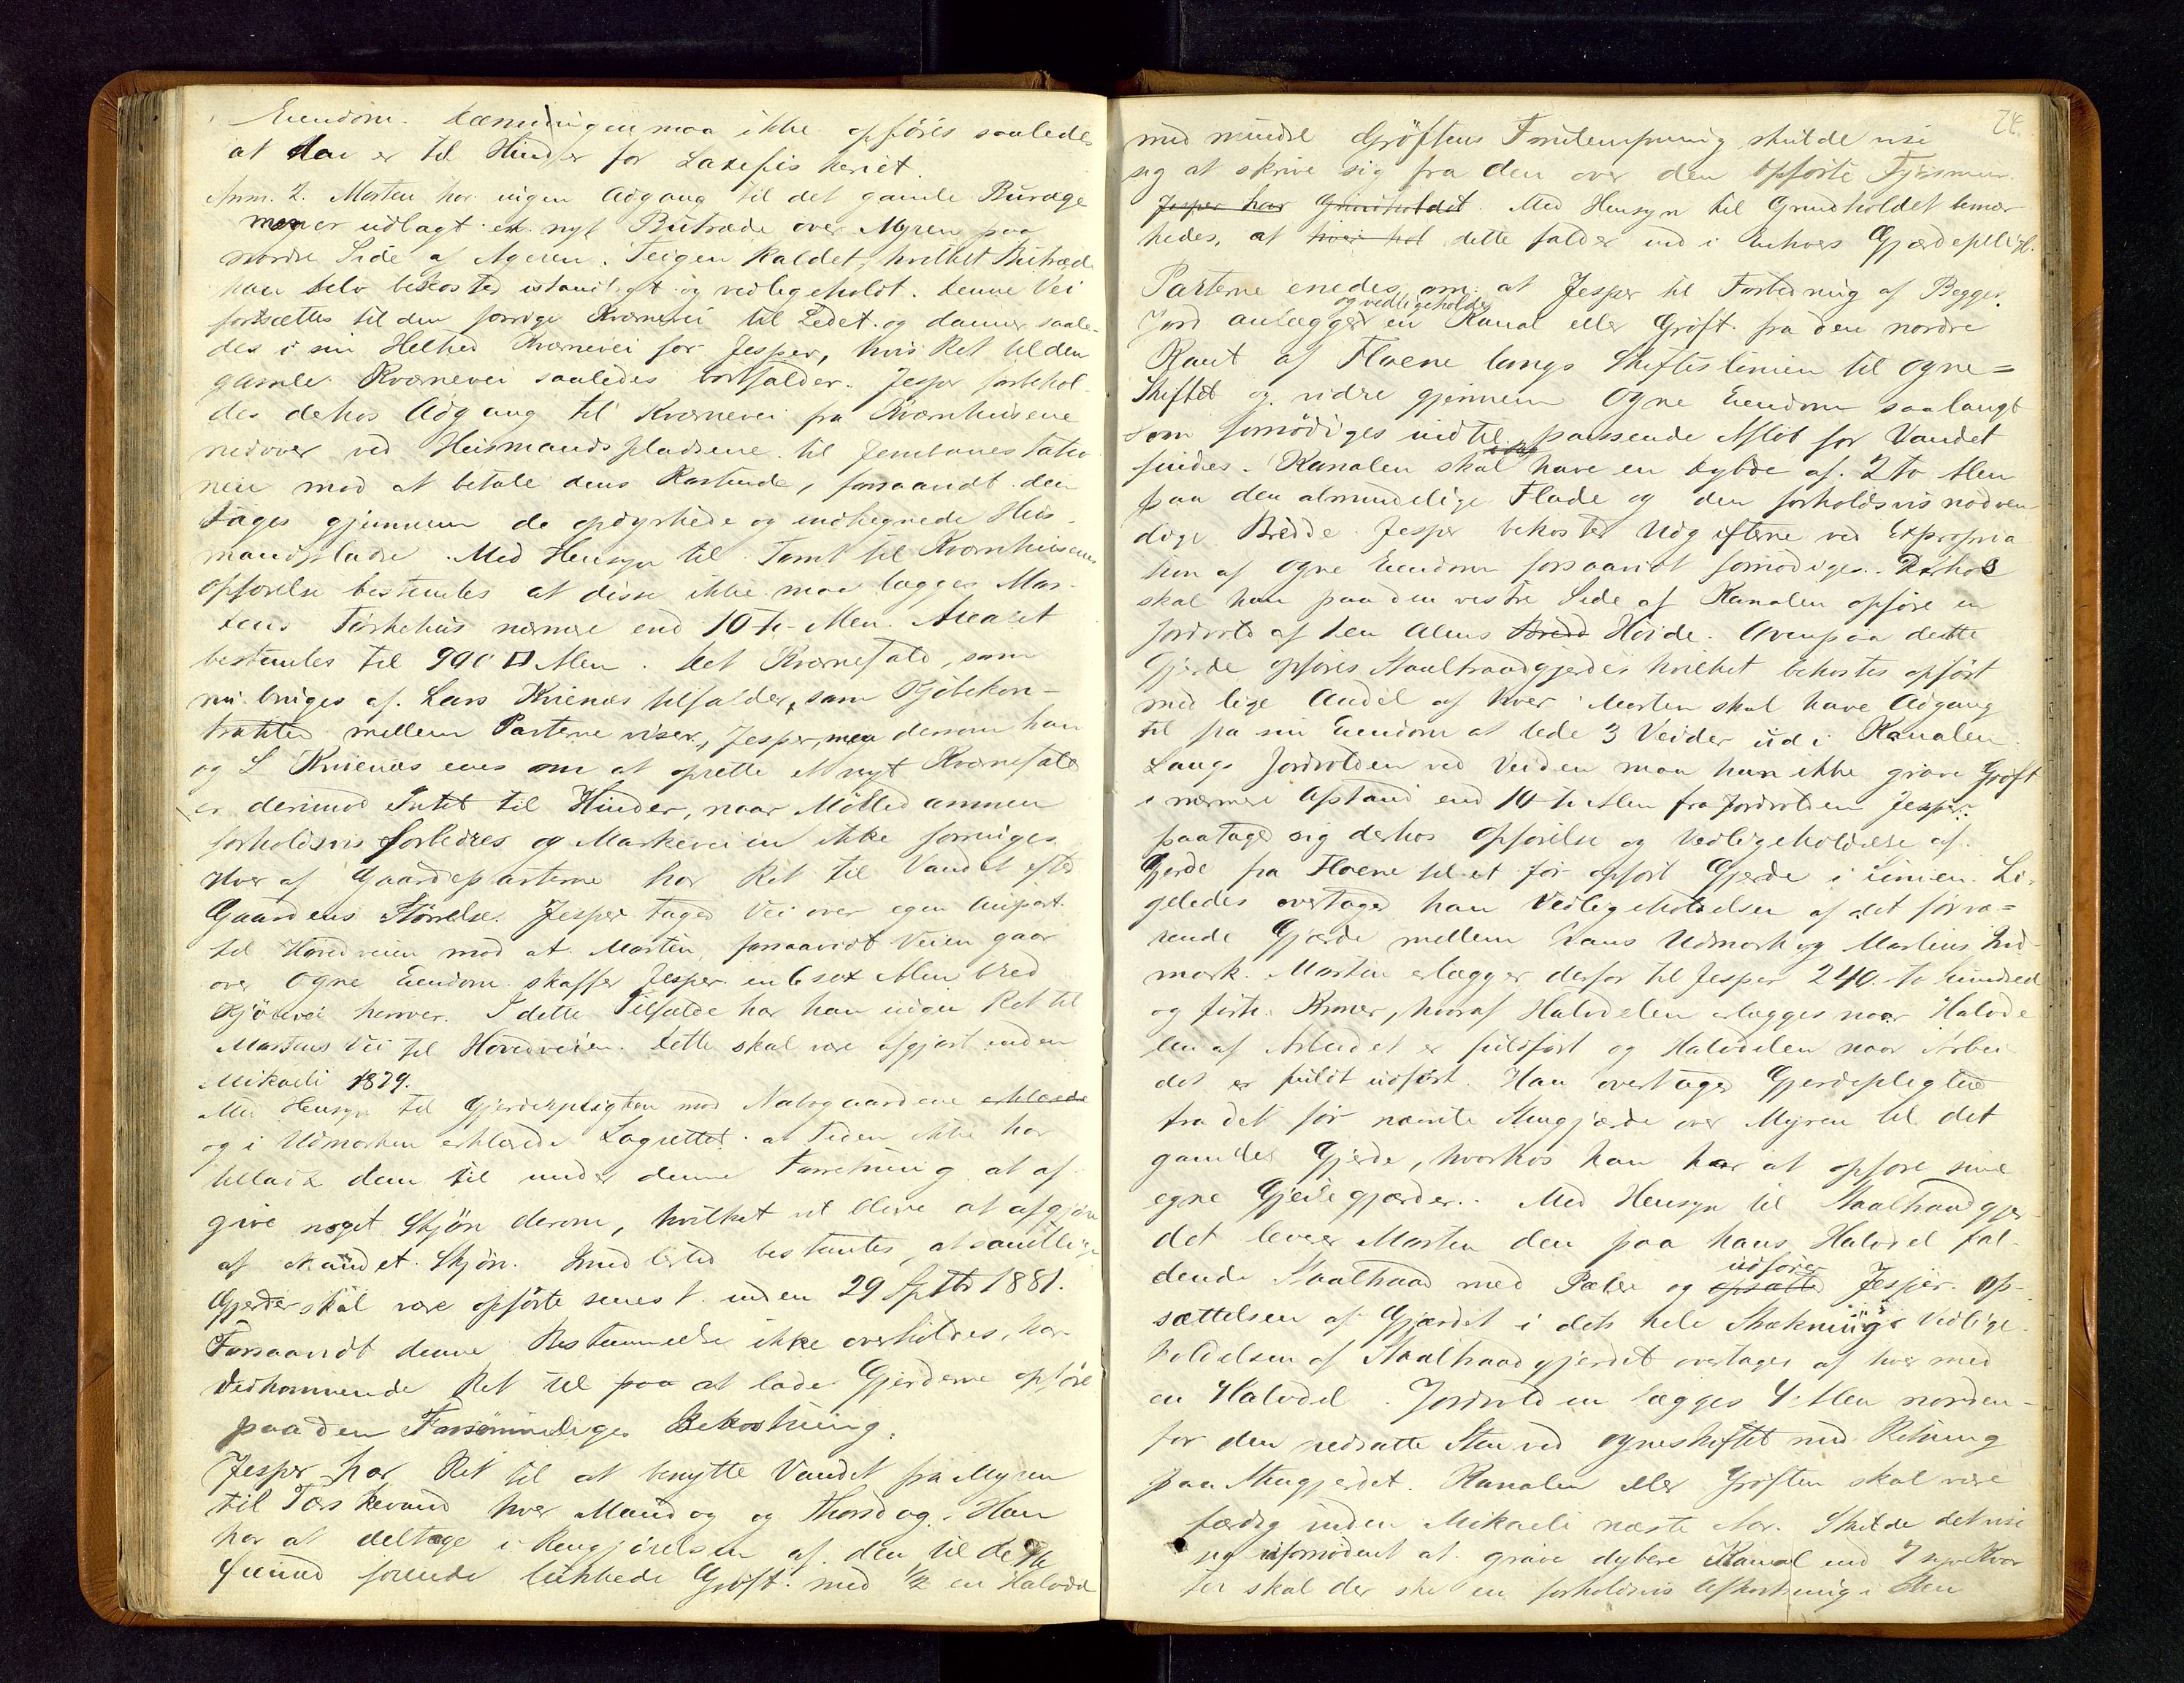 Eiendom. Dæmningen maa ikke opføres saaledes
at den er til Hinder for Laxefiskeriet.
Anm. 2. Morten har ingen Adgang til det gamle Buræge
men er udlagt et nyt Butræde over Myren paa
nordre Side af Ageren, Teigen kaldet, hvilket Butræde
han selv bekoster istandlagt og vedligeholdt. Denne Vei
fortsættes til den forrige Kværnevei til Ledet og danner saale-
des i sin Helhed Kværnevei for Jesper, hvis Ret til den
gamle Kværnevei saaledes bortfalder. Jesper forbehol-
des derhos Adgang til Kværnevei fra Kværnhusene
nedover ved Husmandspladsene til Jernbanestatio
nen mod at betale dens Kostende, forsaavidt den
tages gjennem de opdyrkede og indhegnede Hus-
mandspladse. Med Hensyn til Tomt til Kværnhusenes
opførelse bestemtes at disse ikke maa lægges Mor-
tens Tørkehus nærmere end 10 ti Alen. Arealet
bestemtes til 900 □ Alen. Det Kværnefald, som
nu bruges af Lars Kvienæs tilfalder, som Kjøbekon-
trakten mellem Parterne viser, Jesper, men dersom han
og L Kvienæs enes om at oprette et nyt Kværnefald
er derimod Intet til Hinder, naar Mølledammen
forholdsvis forbedres og Markeveien ikke forringes
Hver af Gaardeparterne har Ret til Vandet efter
Gaardens Størrelse. Jesper tager Vei over egen Anpart
til Hovedveien mod at Morten, forsaavidt Veien gaar
over Ogne Eiendom skaffer Jesper en 6 sex Alen bred
Kjørevei herover. I dette Tilfælde har han ingen Ret til
Mortens Vei til Hovedveien. Dette skal være afgjort inden
Mikaeli 1879.
Med Hensyn til Gjerdepligten mod Nabogaardene erklærede
og i Udmarken erklærede Lagrettet at Tiden ikke har
tilladt dem til under denne Forretning at af-
give noget Skjøn derom, hvilket vil blive at afgjøre
af mindet Skjøn. Imidlertid bestemtes, at samtlige
Gjerder skal være opførte senest inden 29 Septbr 1881.
Forsaavidt denne Bestemmelse ikke overholdes, har
Vedkommende Ret til paa at lade Gjerderne opføre
paa den Forsømmeliges Bekostning.
Jesper har Ret til at benytte Vandet fra Myren
til Tærskevand hver Mandag og Thorsdag. Han
har at deltage i Rengjørelsen af den til dette
Qvand førende lukkede Grøft med 1/2 en Halvdel
74.
med mindre Grøftens Fortempning skulde vise
sig at skrive sig fra den over den opførte Fjøsmur.
Jesper har Grundholdet. Med Hensyn til Grundholdet bemær
kedes, at hver hol dette falder ind i Enhvers Gjærdepligt.
Parterne enedes om at Jesper til Forbedring af Begges
og vedligeholder
Jord anlægger en Kanal eller Grøft fra den nordre
Kant af Floene langs Skifteslinien til Ogne=
skiftet og vidre gjennem Ogne Eiendom saalangt
som fornødiges indtil passende Afløb for Vandet
findes. Kanalen skal have en Dybde af 2 to Alen
paa den almindelige Flade og den forholdsvis nødven
dige Bredde. Jesper bekoster Udgifterne ved Expropria
tion af Ogne Eiendom forsaavidt fornødiges. Derhos
skal han paa den vestre Side af Kanalen opføre en
Jordvold af 1 en Alens Bredd Høide. Ovenpaa dette
Gjerde opføres Staaltraadgjerde hvilket bekostes opført
med lige Andel af hver. Morten skal have Adgang
til fra sin Eiendom at lede 3 Veider ud i Kanalen.
Langs Jordvolden ved Veiden maa han ikke grave Grøft
i nærmere Afstand end 10 ti Alen fra Jordvolden. Jesper
paatager sig derhos Opførelse og Vedligeholdelse af
Gjerde fra Floene til et før opført Gjerde i Linien. Li-
geledes overtager han Vedligeholdelsen af det førva=
rende Gjærde mellem hans Udmark og Martins Ind-
mark. Morten erlægger derfor til Jesper 240 to hundred
og førti Kroner, hvoraf Halvdelen erlægges naar Halvde
len af Arbeidet er fuldført og Halvdelen naar Arbei
det er fuldt udført. Han overtager Gjerdepligten
fra det før nævnte Stengjærde over Myren til det
gamle Gjerde, hvorhos han har at opføre sine
egne Gjeilegjærder. Med Hensyn til Staaltraadgjer-
det leverer Morten den paa hans Halvdel fal-
udfører
dende Staaltraad med Pæler og opsætter Jesper. Op-
sættelsen af Gjærdet i dets hele Strækning. Vedlige
holdelsen af Staaltraadgjerdet overtages af hver med
en Halvdel. Jordvolden lægges 4 Alen norden-
for den nedsatte Sten ved Ogneskiftet med Retning
paa Stengjerdet. Kanalen eller Grøften skal være
færdig inden Mikaeli næste Aar. Skulde det vise
sig ufornødent at grave dybere Kanal end 7 syv Kvar
ter skal der ske en forholdsvis Afkortning i den